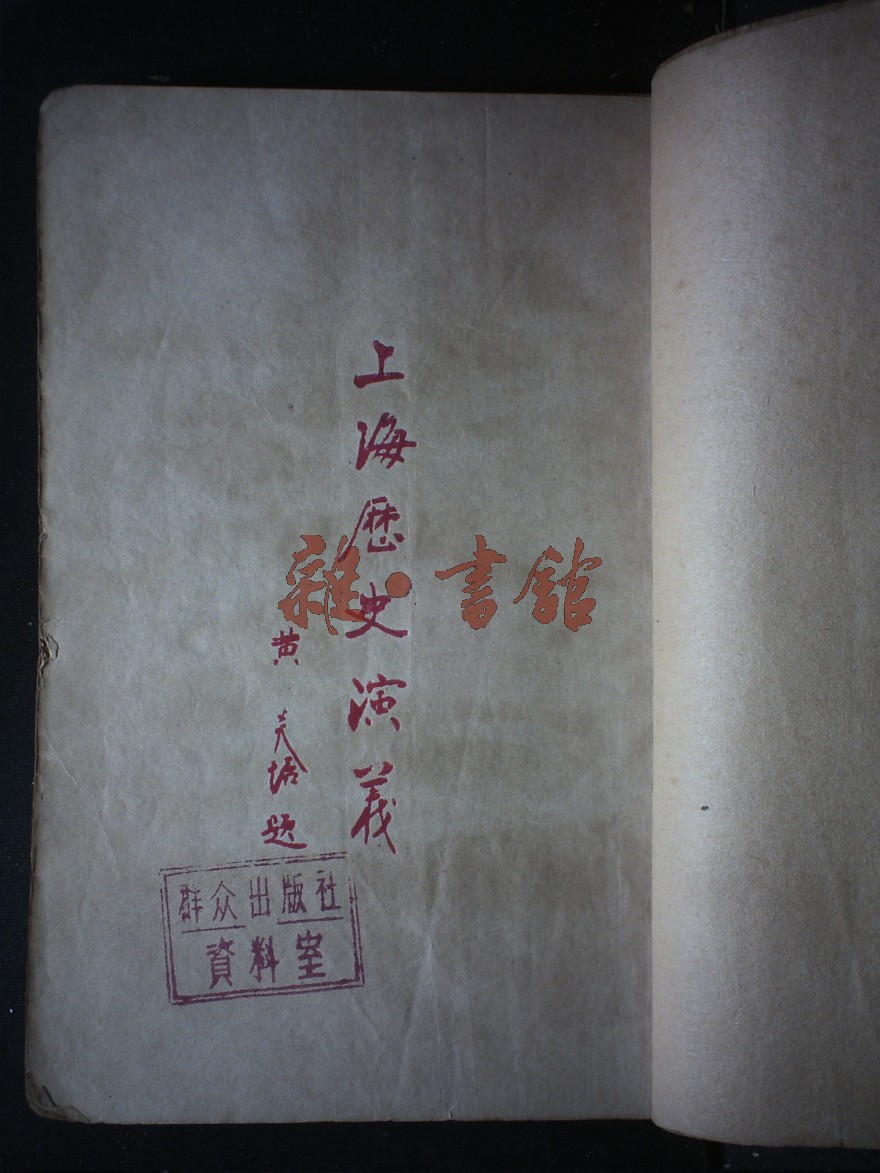 上海歷史演義
黄天培題
群众出版社
資料室
雜·書館